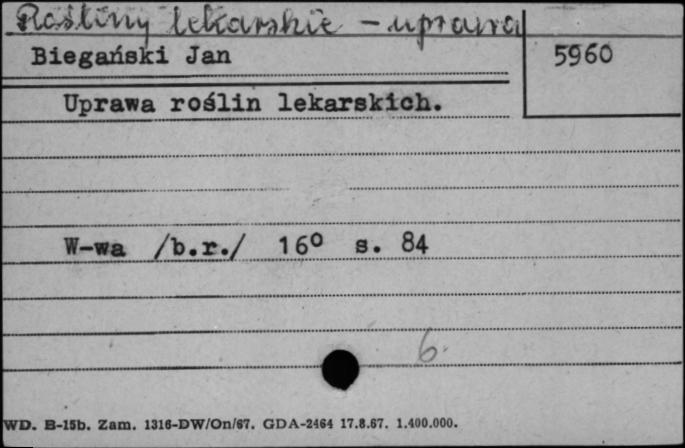 Rośliny lekarskie - uprawa
Biegański Jan
5960
Uprawa roślin lekarskich.
W-wa /b.r./ 16° s. 84
6.
WD. B-15b. Zam. 1316-DW/On/67. GDA-2464 17.8.67. 1.400.000.